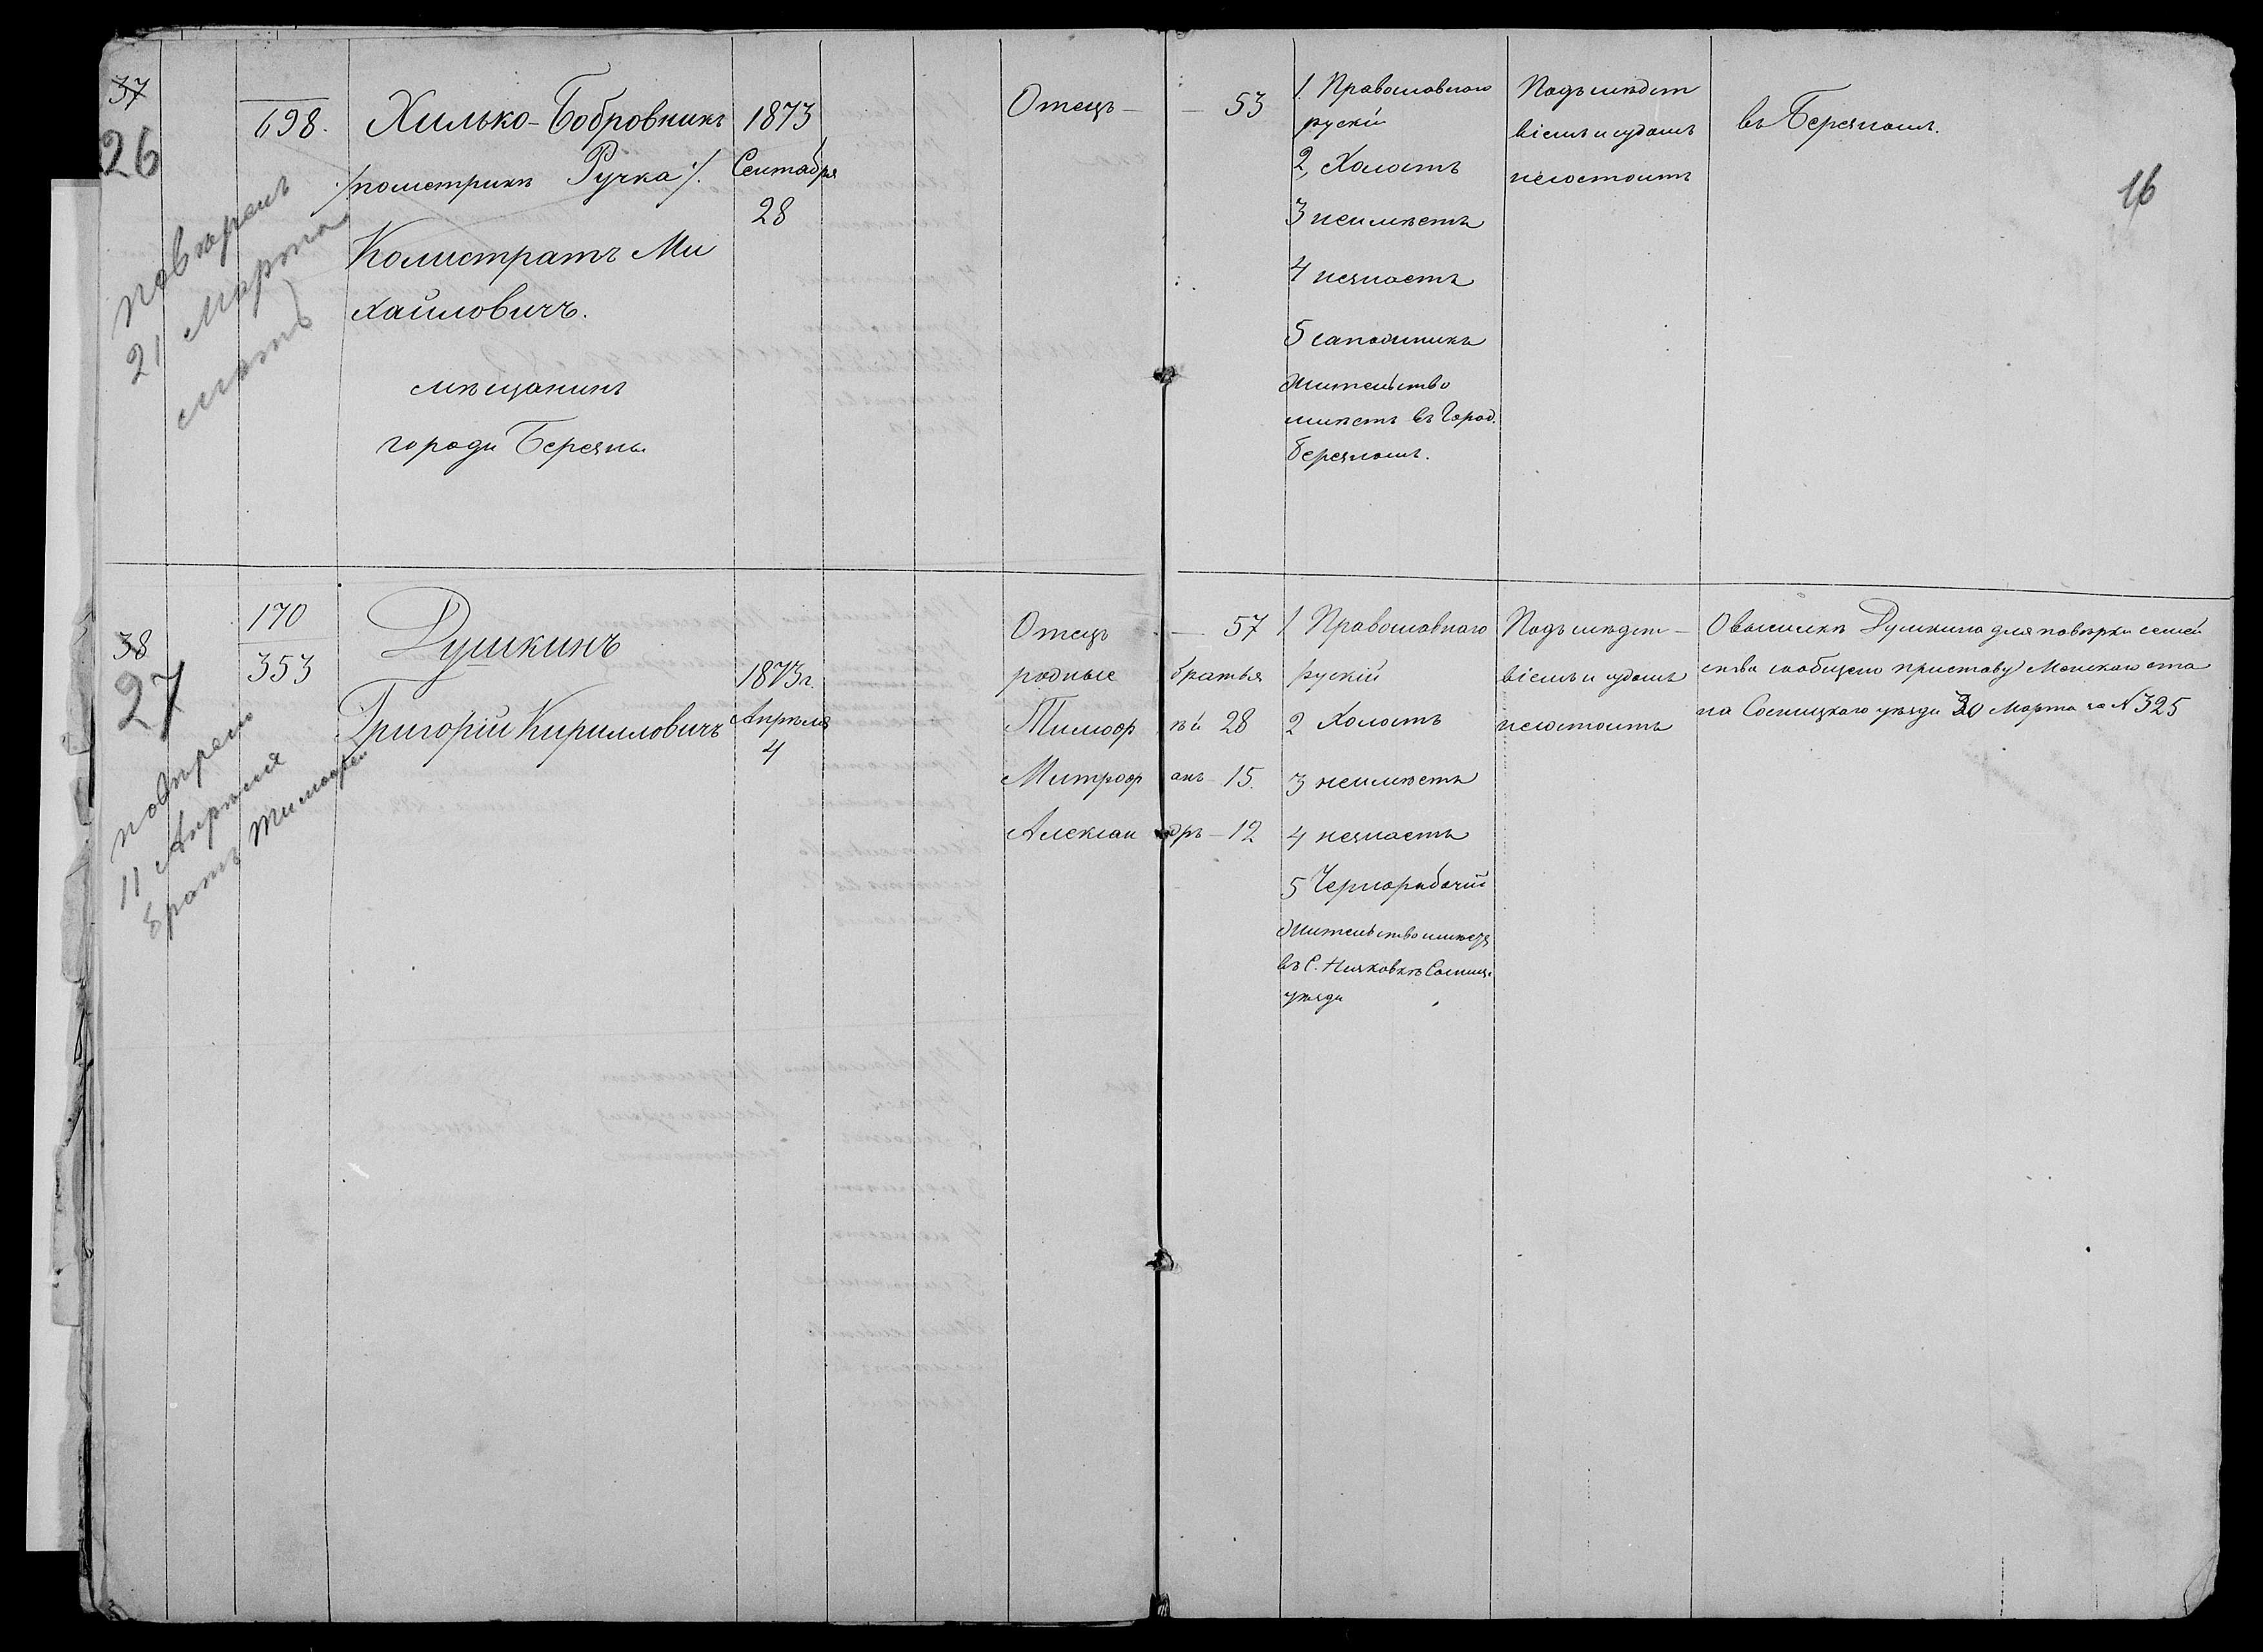 37
26
повѣренъ
21 Марта
мать
698.
Хилько-Бобровникъ
/пометрикѣ Ручка/.
Колистратъ Ми
хайловичъ.
мѣщанинъ
города Березны
1873
Сентября
28
Отецъ — — 53
1. Православного
рускій
2, Холостъ
3 неимѣетъ
4 незнаетъ
5 сапожникъ
Жительство
имѣетъ въ Город.
Березномъ.
Подъ слѣдст
віемъ и судомъ
несостоитъ
въ Березномъ.
16
38
27
повѣренъ
11 Апрѣля
братъ Тимофей
170
353
Душкинъ
Григорій Кирилловичъ
1873 г.
Апрѣля
4
Отецъ — 57
родные братья
Тимоф ѣй 28
Митроф анъ — 15.
Алексан дръ — 12
1 Православного
рускій
2 Холостъ
3 неимѣетъ
4 незнаетъ
5 Чернорабочій
Жительство имѣетъ
въ С. Сосниц.
уѣзда
Подъ слѣдст —
віемъ и судомъ
несостоитъ
О высылкѣ Душкина для повѣрки семей
ства сообщено приставу Менскаго ста
на Сосницкаго уѣзда 30 Марта за № 325